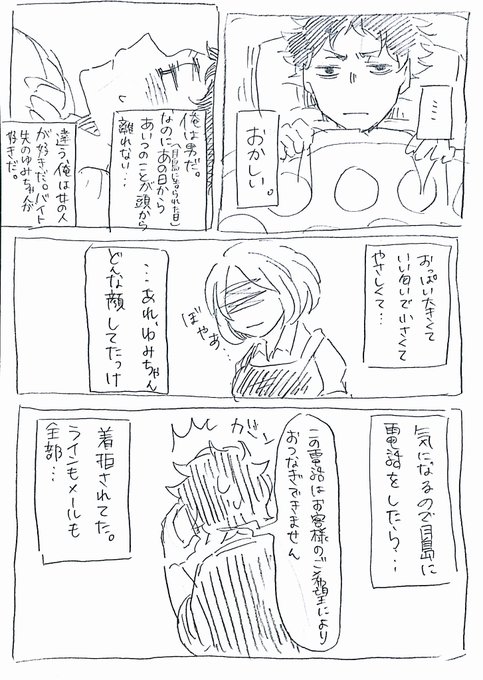 …
おかしい。
俺は男だ。
なのにあの日から
あいつのことが頭から
離れない…
違う、俺は女の人
が好きだ。バイト
先のゆみちゃんが
好きだ。
おっぱい大きくて
いい匂いで小さくて
やさしくて…
ぼやあ…
…あれ、ゆみちゃん
どんな顔してたっけ
気になるので月島に
電話をしたら…
この電話はお客様のご希望により
おつなぎできません
ガーン
着拒されてた。
ラインもメールも
全部…